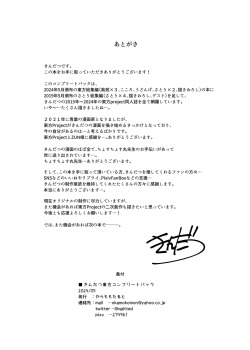 あとがき
さんだつです。
この本をお手に取っていただきありがとうございます！
このコンプリートパックは、
2024年5月頒布の東方総集編(真相×3、こころ、うどんげ、さとり×2、描きおろし)の本に
2019年5月頒布のさとり総集編(さとり×4、描きおろし、ゲスト)を足して、
さんだつの2015年〜2024年の東方project同人誌を全て網羅しています。
いや〜…たくさん描きましたね…
２０２１年に青葉の漫画家となりましたが、
東方Projectがさんだつの漫画を描き始めるきっかけとなっており、
今の自分があるのは…と考えるばかりです。
東方ProjectとZUN様に感謝を…ありがとうございます。
さんだつの漫画のほぼ全て、ちょうちょ丸丸先生のお手伝いがあって
世に送り出されています…。
ちょうちょ丸丸先生、いつもありがとうございます。
そして、この本を手に取って頂いている方、さんだつを推してくれるファンの方々…
SNSなどのいいねやリプライ、PixivFanBoxなどの支援…
さんだつの創作意欲を維持してくれたたくさんの方々に感謝します。
本当にありがとうございます…
現在オリジナルの制作に尽力していますが、
また機会があれば東方Projectの二次創作も描きたいと思っています。
今後とも応援よろしくお願いします…！
では、また機会があれば次の本で……
さんだつ
奥付
■さんだつ東方コンプリートパック
2024/05